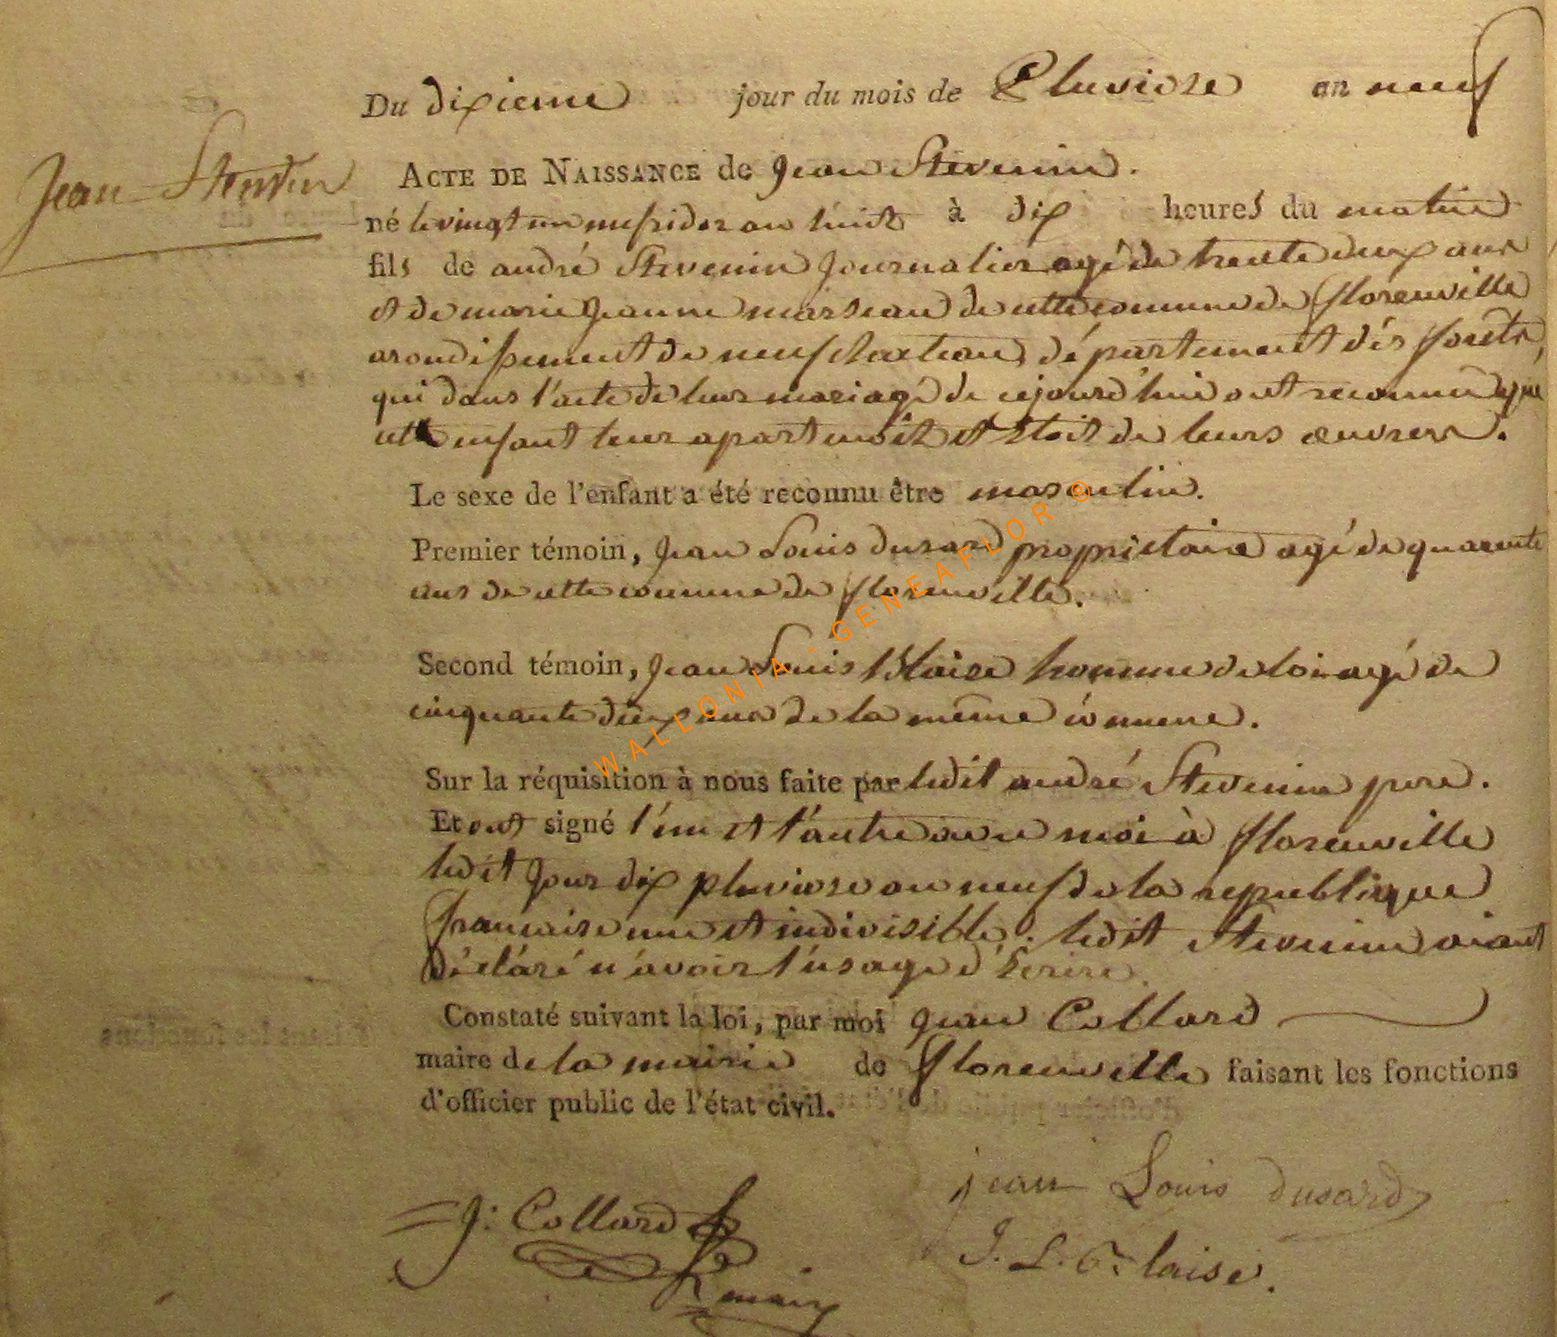 Du dixieme jour du mois de Pluviose an neuf
Jean Stevenin
ACTE DE NAISSANCE de Jean Stevenin.
né le vingt un messidor an huit à dix heures du matin
fils de andré Stevenin Journalier agé de trente deux ans
et de marie Jeanne marseau de cette commune de florenville
arondissement de neufchateau, département dés forets,
qui dans l'acte de leur mariage de cejourd'hui ont reconnu que
cette enfant leur apartenoit et Etoit de leurs œuvres.
Le sexe de l'enfant a été reconnu être masculin.
Premier témoin, Jean Louis dusard propriétaire agé de quarante
ans de cette commune de florenville.
Second témoin, Jean Louis Blaise homme de loi agé de
cinquante deux ans de la même commune.
Sur la réquisition à nous faite par ledit andré Stevenin pere.
Et ont signé l'un et l'autre avec moi à florenville
ledit Jour dix pluviose an neuf de la republique
francaise une et indivisible. ledit Stevenin aiant
déclaré n'avoir l'usage d'Ecrire
Constaté suivant la loi, par moi Jean Collard
maire de la mairie de florenville faisant les fonctions
d'officier public de l'état civil.
jean Louis dusard
J: Collard
J. L. Blaise.
maire
WALLONIA - GENEAFLOR ©